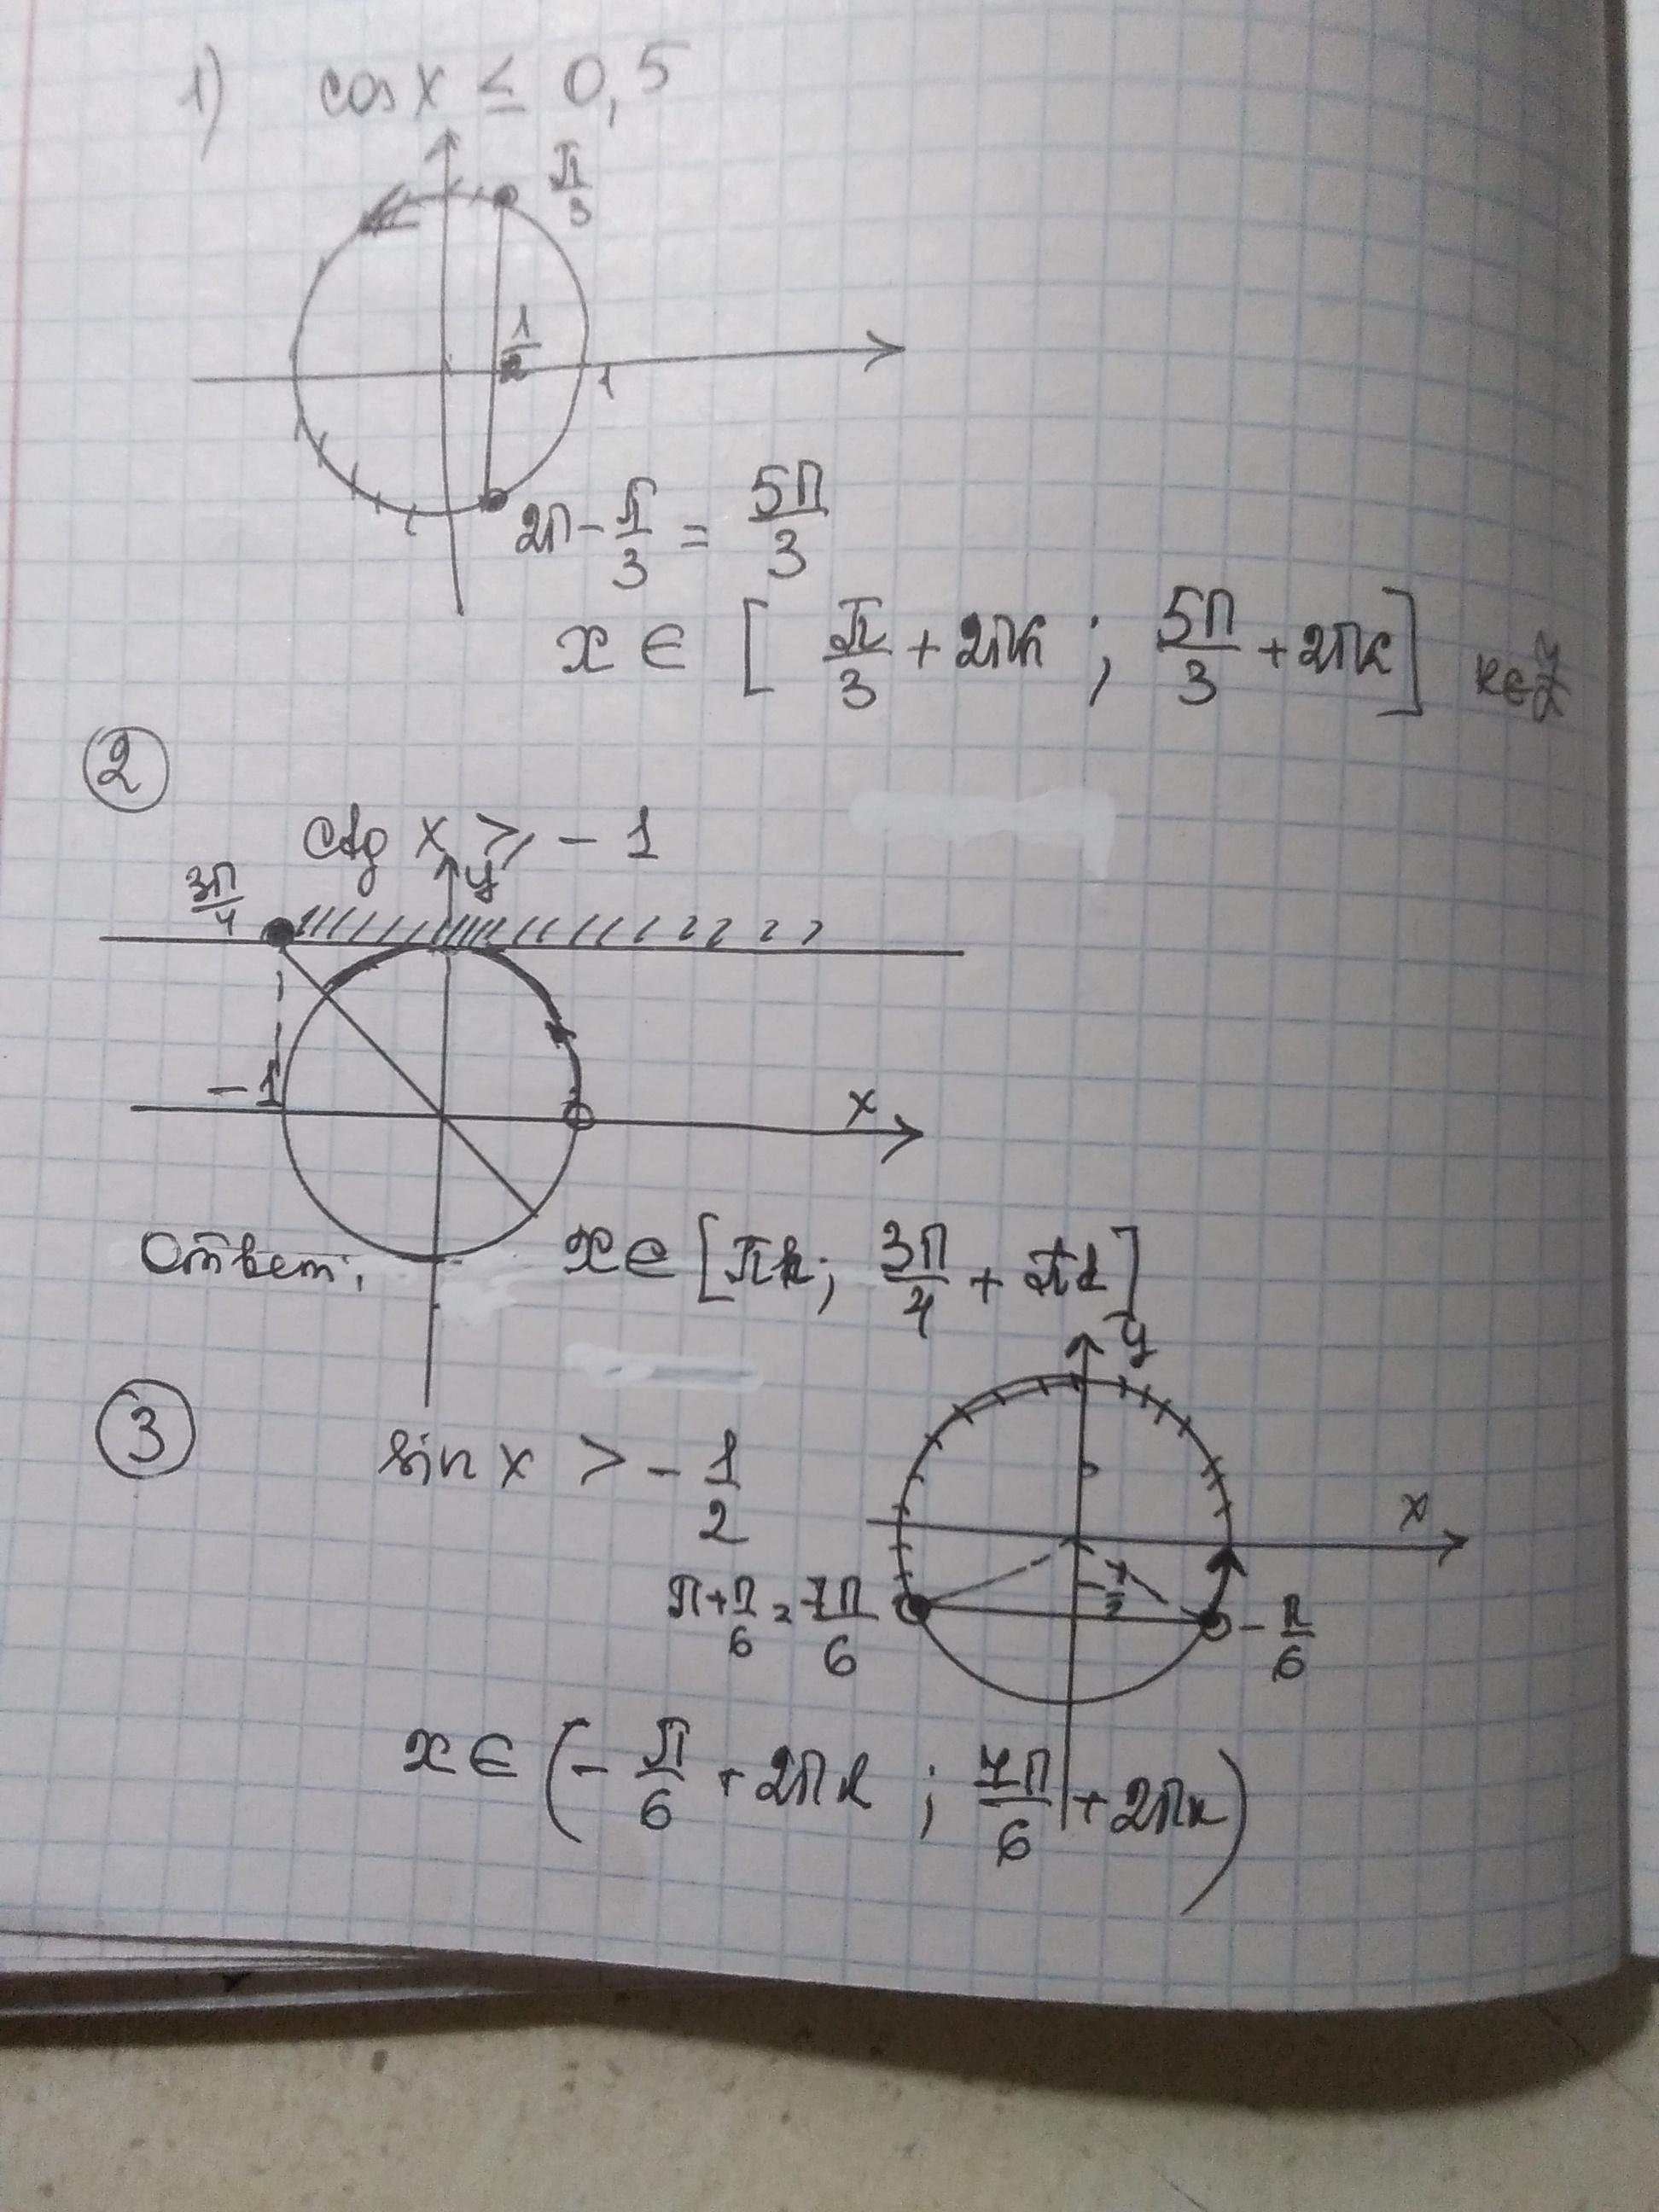 1) cos x ≤ 0,5
π/3
1/2
1
2π - π/3 = 5π/3
x ∈ [π/3 + 2πk ; 5π/3 + 2πk] k∈Z
②
ctg x ≥ - 1
y
3π/4
- 1
x
Ответ: x ∈ [πk; 3π/4 + πk]
y
③
sin x > - 1/2
x
π + π/6 = 7π/6
- 1/2
- π/6
x ∈ (- π/6 + 2πk ; 7π/6 + 2πk)